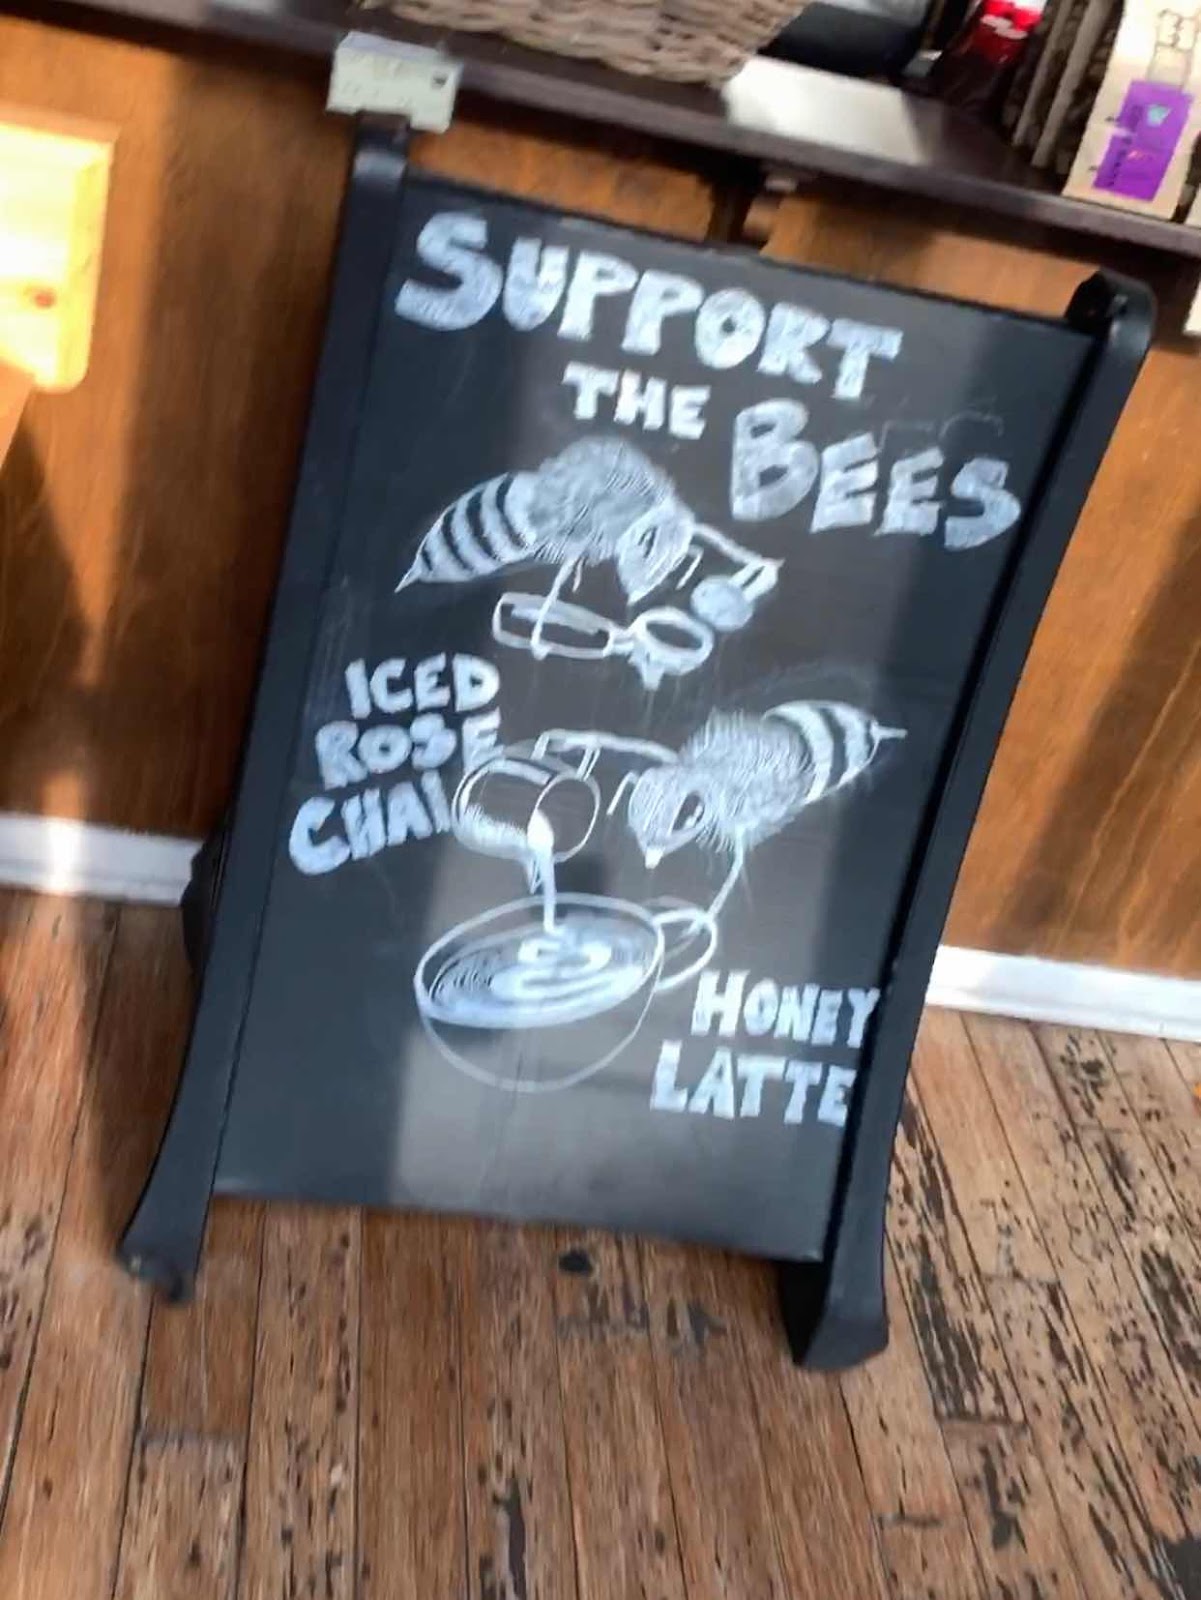 SUPPORT
THE BEES
ICED
ROSE
CHAI
HONEY
LATTE